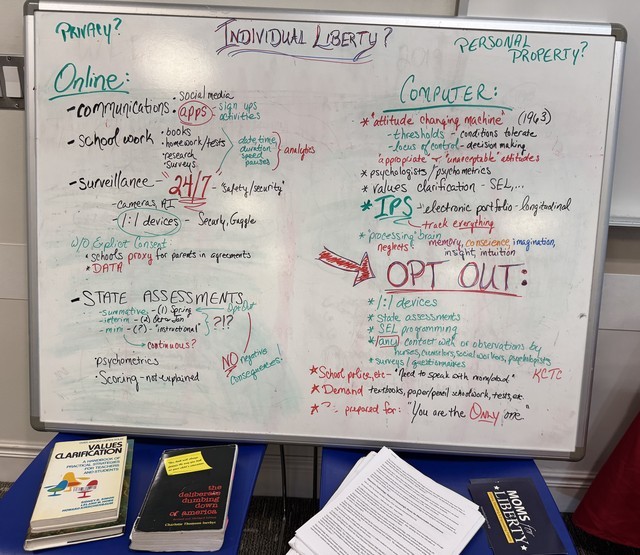 PRIVACY?
INDIVIDUAL LIBERTY?
PERSONAL PROPERTY?
Online:
- communications
• social media
• apps - sign ups
activities
- school work
• books
• homework/tests
• research
• surveys
date, time,
duration
speed
pauses
analytics
- surveillance "24/7" "safety/security"
- cameras, AI
- 1:1 devices - Securly, Gaggle
w/o Explicit Consent:
* schools proxy for parents in agreements
* DATA
- STATE ASSESSMENTS
- summative - (1) Spring
- interim - (2)
- mini - (?) - "instructional"
?!?
Opt Out
continuous?
NO negative
consequences!
Psychometrics
• Scoring - not explained
COMPUTER:
* "attitude changing machine" (1963)
- thresholds - conditions tolerate
- locus of control - decision making
"appropriate" & "unacceptable" attitudes
* psychologists/psychometrics
* values clarification - SEL,...
* IPS - electronic portfolio - longitudinal
track everything
* "processing" brain
neglects memory, conscience, imagination,
insight, intuition
OPT OUT:
* 1:1 devices
* state assessments
* SEL programming
* any contact with or observations by
nurses, counselors, social workers, psychologists
* surveys/questionnaires
* School police, etc - "Need to speak with mom/dad" KCTC
* Demand textbooks, paper/pencil schoolwork, tests, etc.
* prepared for: "You are the ONLY one"
VALUES
CLARIFICATION
A HANDBOOK OF
PRACTICAL STRATEGIES
FOR TEACHERS
AND STUDENTS
the
deliberate
dumbing
down of
america
Charlotte Thomson Iserbyt
MOMS
for
LIBERTY